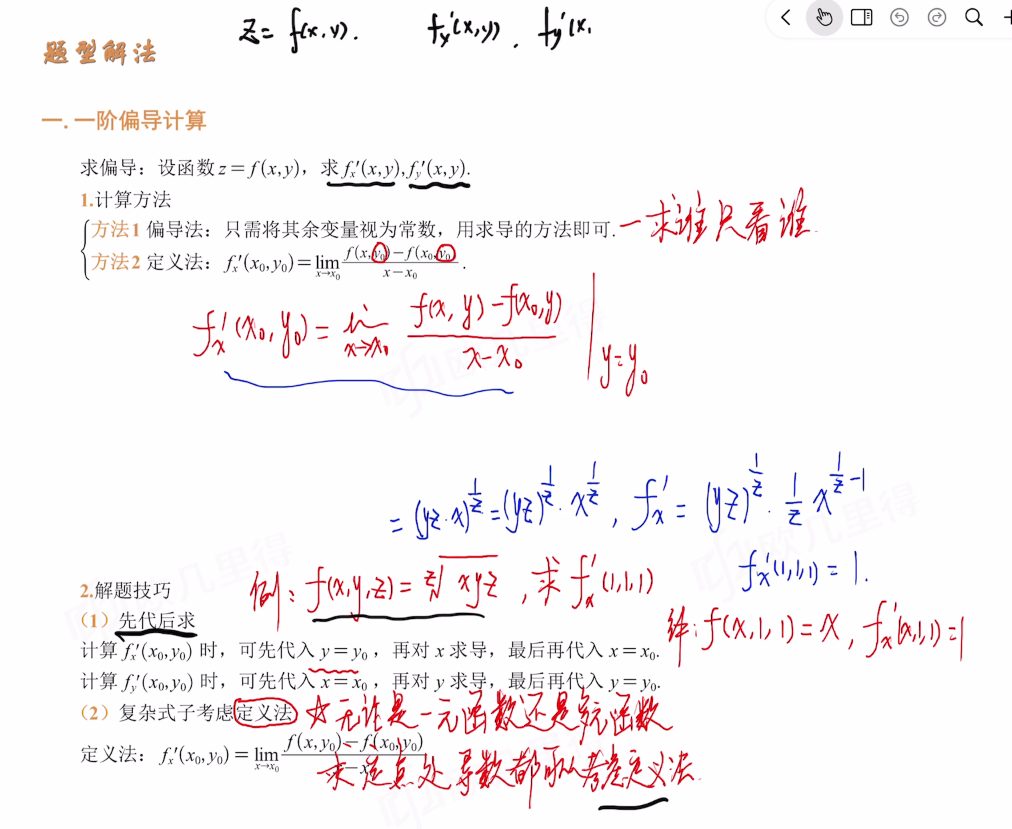 z = f(x,y).    f'x(x,y).  f'y(x,
题型解法
一. 一阶偏导计算
求偏导：设函数 z = f(x,y)，求 f'x(x,y), f'y(x,y).
1.计算方法
方法1 偏导法：只需将其余变量视为常数，用求导的方法即可. 一求谁只看谁.
方法2 定义法：f'x(x₀,y₀) = lim x→x₀ (f(x,y₀) − f(x₀,y₀))/(x − x₀).
f'x(x₀,y₀) = lim x→x₀ (f(x,y) − f(x₀,y))/(x − x₀) | y=y₀
= (yz·x)^(1/z) = (yz)^(1/z)·x^(1/z), f'x = (yz)^(1/z)·(1/z) x^(1/z −1)
f'x(1,1,1) = 1.
2.解题技巧
例: f(x,y,z) = ᶻ√(xyz), 求 f'x(1,1,1)
（1）先代后求
解: f(x,1,1) = x, f'x(x,1,1) = 1
计算 f'x(x₀,y₀) 时，可先代入 y = y₀，再对 x 求导，最后再代入 x = x₀.
计算 f'y(x₀,y₀) 时，可先代入 x = x₀，再对 y 求导，最后再代入 y = y₀.
（2）复杂式子考虑定义法 ☆无论是一元函数还是多元函数
定义法：f'x(x₀,y₀) = lim x→x₀ (f(x,y₀) − f(x₀,y₀))/(x
求定点处导数都可以考虑定义法.
欧几里得
欧几里得